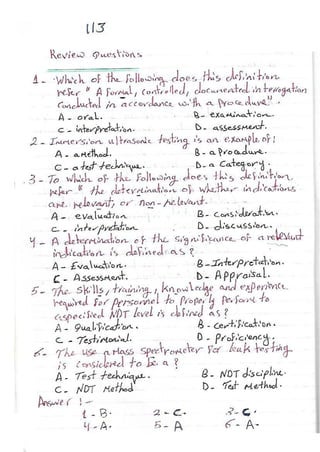 113
Review Questions
1- Which of the following does this definition
refer " A formal, controlled, documented interrogation
conducted in accordance with a procedure".
A - oral. B- examination.
C - interpretation. D- assessment.
2- Immersion ultrasonic testing is an example of:
A - a method. B - a procedure.
C - a test technique. D- a Category.
3- To which of the following does this definition
refer " the determination of whether indications
are relevant, or non-relevant.
A - evaluation B- consideration.
C - interpretation D - discussion.
4- A determination of the significance of a relevant
indication is defined as ?
A - Evaluation. B - Interpretation.
C - Assessment. D- Appraisal.
5- The skills, training, knowledge and experience
required for personnel to properly perform to
a specified NDT level is defined as ?
A - Qualification. B - Certification.
C - Testimonial. D - Proficiency.
6- The use a Mass Spectrometer for leak testing
is considered to be a ?
A - Test technique. B - NDT discipline.
C - NDT Method D- Test Method.
Answer :-
1 - B. 2 - C. 3 - C.
4 - A. 5 - A 6 - A.